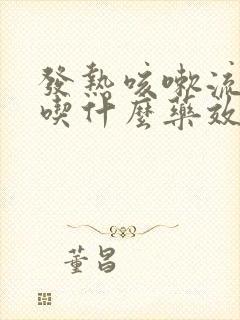 發熱咳嗽流
喫什麼藥效
董昌